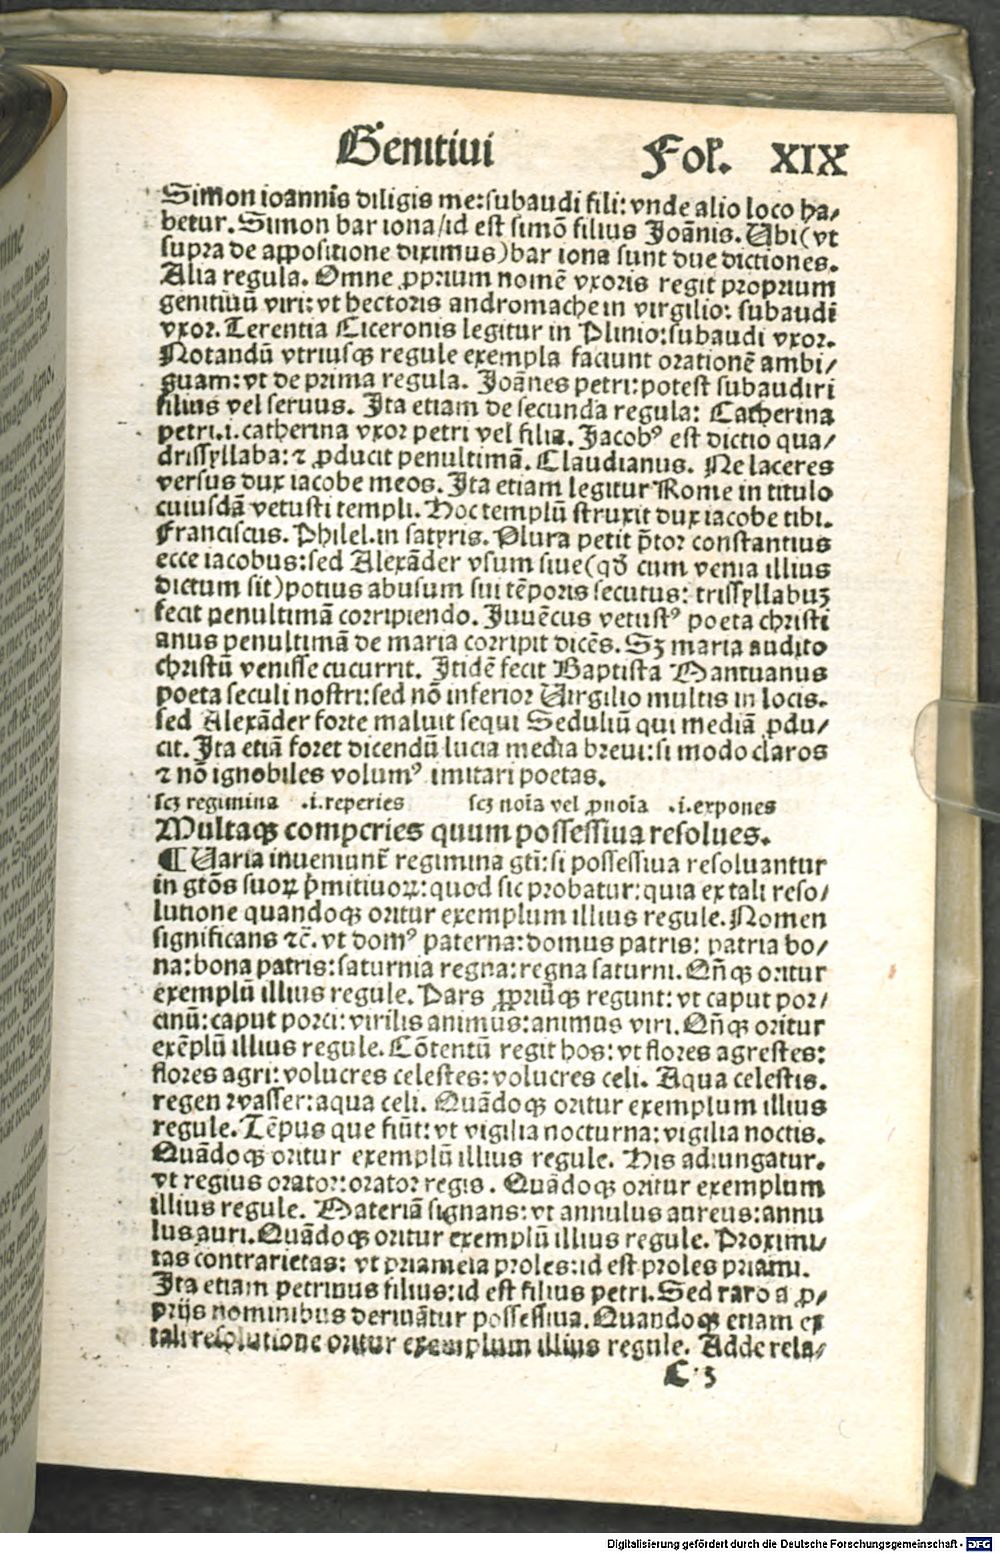 Genitiui Fol. XIX
Simon ioannis diligis me:subaudi fili: vnde alio loco ha/
betur. Simon bar iona/id est simō filius Joānis. Ubi(vt
supra de appositione diximus)bar iona sunt due dictiones.
Alia regula. Omne ꝓprium nomē vxoris regit proprium
genitiuū viri: vt hectoris andromache in virgilio: subaudi
vxor. Terentia Ciceronis legitur in Plinio:subaudi vxor.
Notandū vtriusqꝫ regule exempla faciunt orationē ambi/
guam: vt de prima regula. Joānes petri: potest subaudiri
filius vel seruus. Ita etiam de secunda regula: Catherina
petri.i. catherina vxor petri vel filia. Jacobꝰ est dictio qua/
drissyllaba: ⁊ ꝓducit penultimā. Claudianus. Ne laceres
versus dux iacobe meos. Ita etiam legitur Rome in titulo
cuiusdā vetusti templi. Hoc templū struxit dux iacobe tibi.
Franciscus. Philel. in satyris. Plura petit p̄tor constantius
ecce iacobus: sed Alexāder vsum siue(qď cum venia illius
dictum sit)potius abusum sui tēporis secutus: trissyllabuꝫ
fecit penultimā corripiendo. Juuēcus vetustꝰ poeta christi
anus penultimā de maria corripit dicēs. Sꝫ maria audito
christū venisse cucurrit. Itidē fecit Baptista Mantuanus
poeta seculi nostri: sed nō inferior Uirgilio multis in locis.
sed Alexāder forte maluit sequi Seduliū qui mediā ꝓdu/
cit. Ita etiā foret dicendū lucia media breui: si modo claros
⁊ nō ignobiles volumꝰ imitari poetas.
scꝫ regimina .i.reperies scꝫ noīa vel ꝓnoīa .i.expones
Multaqꝫ comperies quum possessiua resolues.
¶ Uaria inueniunt̄ regimina gtī: si possessiua resoluantur
in gtōs suoꝝ p̄mitiuoꝝ: quod sic probatur: quia ex tali reso/
lutione quandoqꝫ oritur exemplum illius regule. Nomen
significans ⁊c̄. vt domꝰ paterna: domus patris: patria bo/
na: bona patris: saturnia regna: regna saturni. Qn̄qꝫ oritur
exemplū illius regule. Pars ꝓpriūqꝫ regunt: vt caput por/
cinū: caput porci: virilis animus: animus viri. Qn̄qꝫ oritur
exēplū illius regule. Cōtentū regit hos: vt flores agrestes:
flores agri: volucres celestes: volucres celi. Aqua celestis.
regen wasser: aqua celi. Quādoqꝫ oritur exemplum illius
regule. Tēpus que fiūt: vt vigilia nocturna: vigilia noctis.
Quādoqꝫ oritur exemplū illius regule. His adiungatur.
vt regius orator: orator regis. Quādoqꝫ oritur exemplum
illius regule. Materiā signans: vt annulus aureus: annu
lus auri. Quādoqꝫ oritur exemplū illius regule. Proximi/
tas contrarietas: vt priameia proles: id est proles priami.
Ita etiam petrinus filius: id est filius petri. Sed raro a ꝓ/
prijs nominibus deriuātur possessiua. Quandoqꝫ etiam ex
tali resolutione oritur exemplum illius regule. Adde rela/
C 3
Digitalisierung gefördert durch die Deutsche Forschungsgemeinschaft - DFG